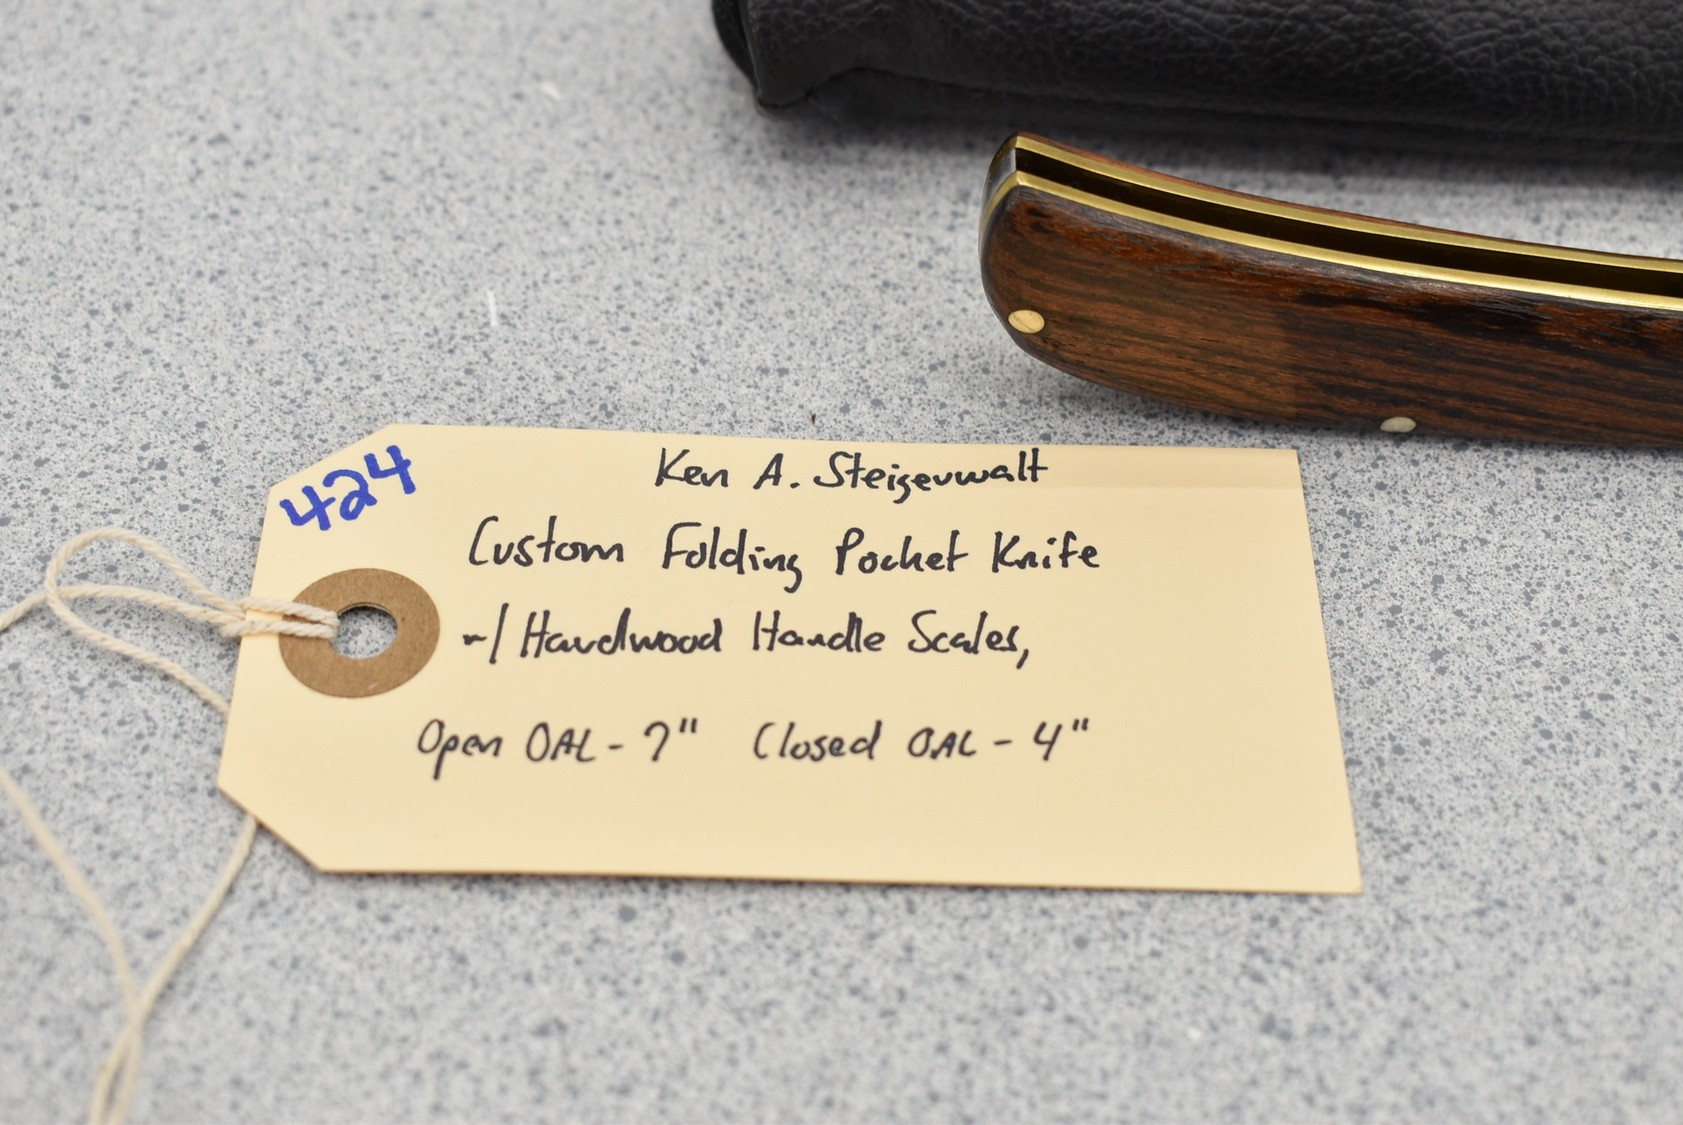 424
Ken A. Steigerwalt
Custom Folding Pocket Knife
w/ Hardwood Handle Scales,
Open OAL - 7" Closed OAL - 4"